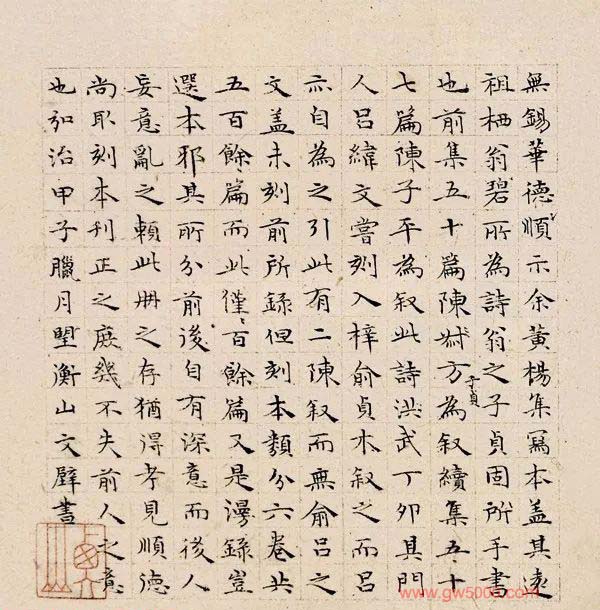 無錫華德順示余黃楊集寫本盖其遠
祖栖翁碧所為詩翁之子貞固所手書
也前集五十篇陳方子貞為叙續集五十
七篇陳子平為叙此詩洪武丁卯其門
人呂緯文嘗刻入梓俞貞木叙之而呂
亦自為之引此有二陳叙而無俞呂之
文盖未刻前所錄但刻本類分六卷共
五百餘篇而此僅百餘篇又是漫錄豈
選本邪其所分前後自有深意而後人
妄意亂之賴此冊之存猶得考見順德
尚取刻本刊正之庶幾不失前人之意
也弘治甲子臘月朢衡山文壁書